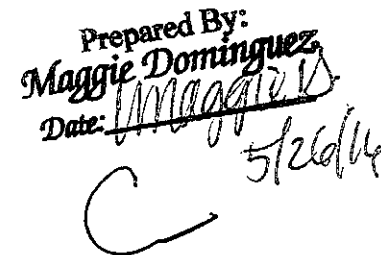 Prepared By:
Maggie Dominguez
Date: Maggie D.
5/26/16
C